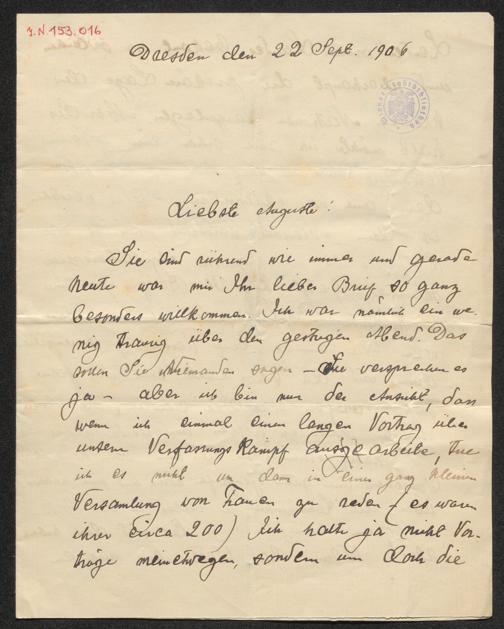 J.N 153.016
Dresden den 22 Sept. 1906
Liebste Auguste!
Sie sind rührend wie immer und gerade
heute war mir Ihr lieber Brief so ganz
besonders willkommen. Ich war nämlich ein we-
nig traurig über den gestrigen Abend. Das
sollen Sie Niemanden sagen – Sie versprechen es
ja – aber ich bin nur der Ansicht, dass
wenn ich einmal einen langen Vortrag über
unsern Verfassungskampf ausgearbeite, tue
ich es nicht um dann in einer ganz kleinen
Versamlung von Frauen zu reden (es waren
ihrer circa 200) Ich halte ja nicht Vor-
träge meinetwegen, sondern um doch die